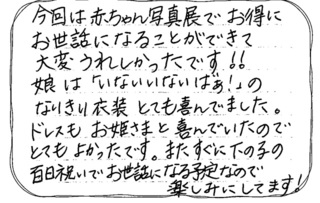 今回は赤ちゃん写真展でお得に
お世話になることができて
大変うれしかったです!!
娘は「いないいないばぁ!」の
なりきり衣装とても喜んでました。
ドレスもお姫さまと喜んでいたので
とてもよかったです。またすぐに下の子の
百日祝いでお世話になる予定なので
楽しみにしてます!